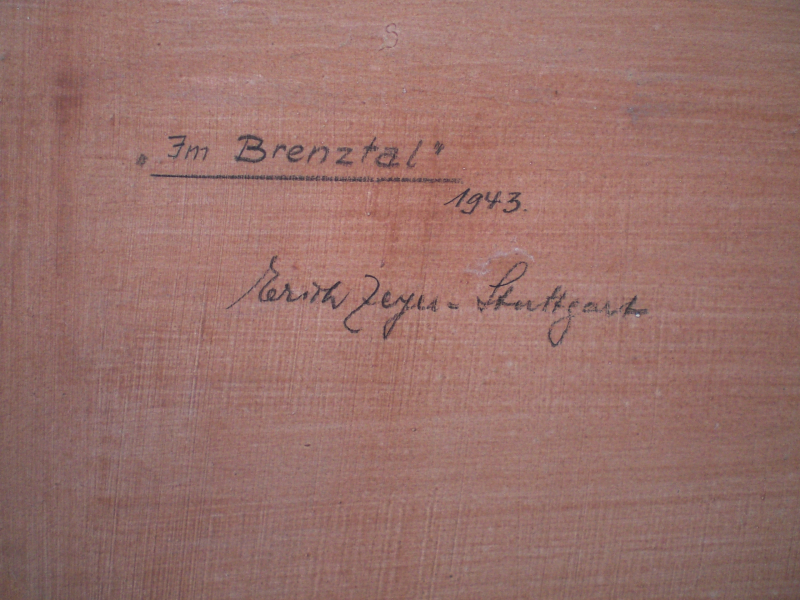 „Im Brenztal"
1943.
Erich Zeyer - Stuttgart